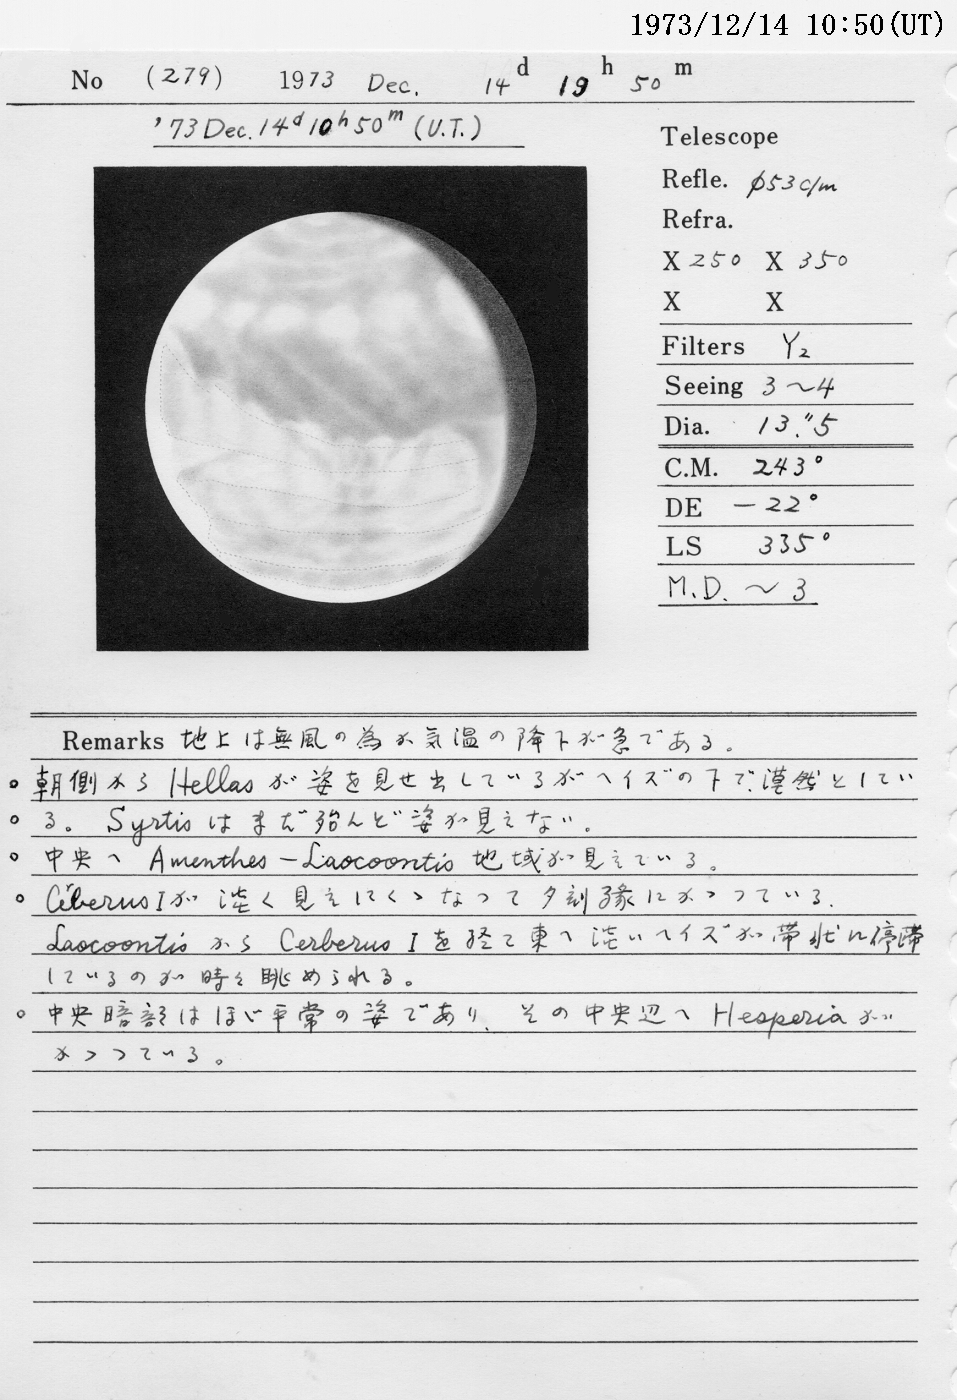 1973/12/14 10:50(UT)
No (279) 1973 Dec. 14d 19h 50m
'73 Dec. 14d 10h 50m (U.T.)
Telescope
Refle. φ53c/m
Refra.
X 250 X 350
X X
Filters Y2
Seeing 3～4
Dia. 13."5
C.M. 243°
DE －22°
LS 335°
M.D. ～3
Remarks 地上は無風の為か気温の降下が急である。
○朝側から Hellas が姿を見せ出しているがヘイズの下で、漠然としてい
○る。 Syrtis はまだ殆んど姿が見えない。
○中央へ Amenthes－Laocoontis 地域が見えている。
○Cerberus I が淡く見えにくくなって夕刻縁にかかっている.
Laocoontis から Cerberus I を経て東へ淡いヘイズが帯状に停滞
しているのが時々眺められる。
○中央暗部はほぼ平常の姿であり、その中央辺へ Hesperia が
かかっている。